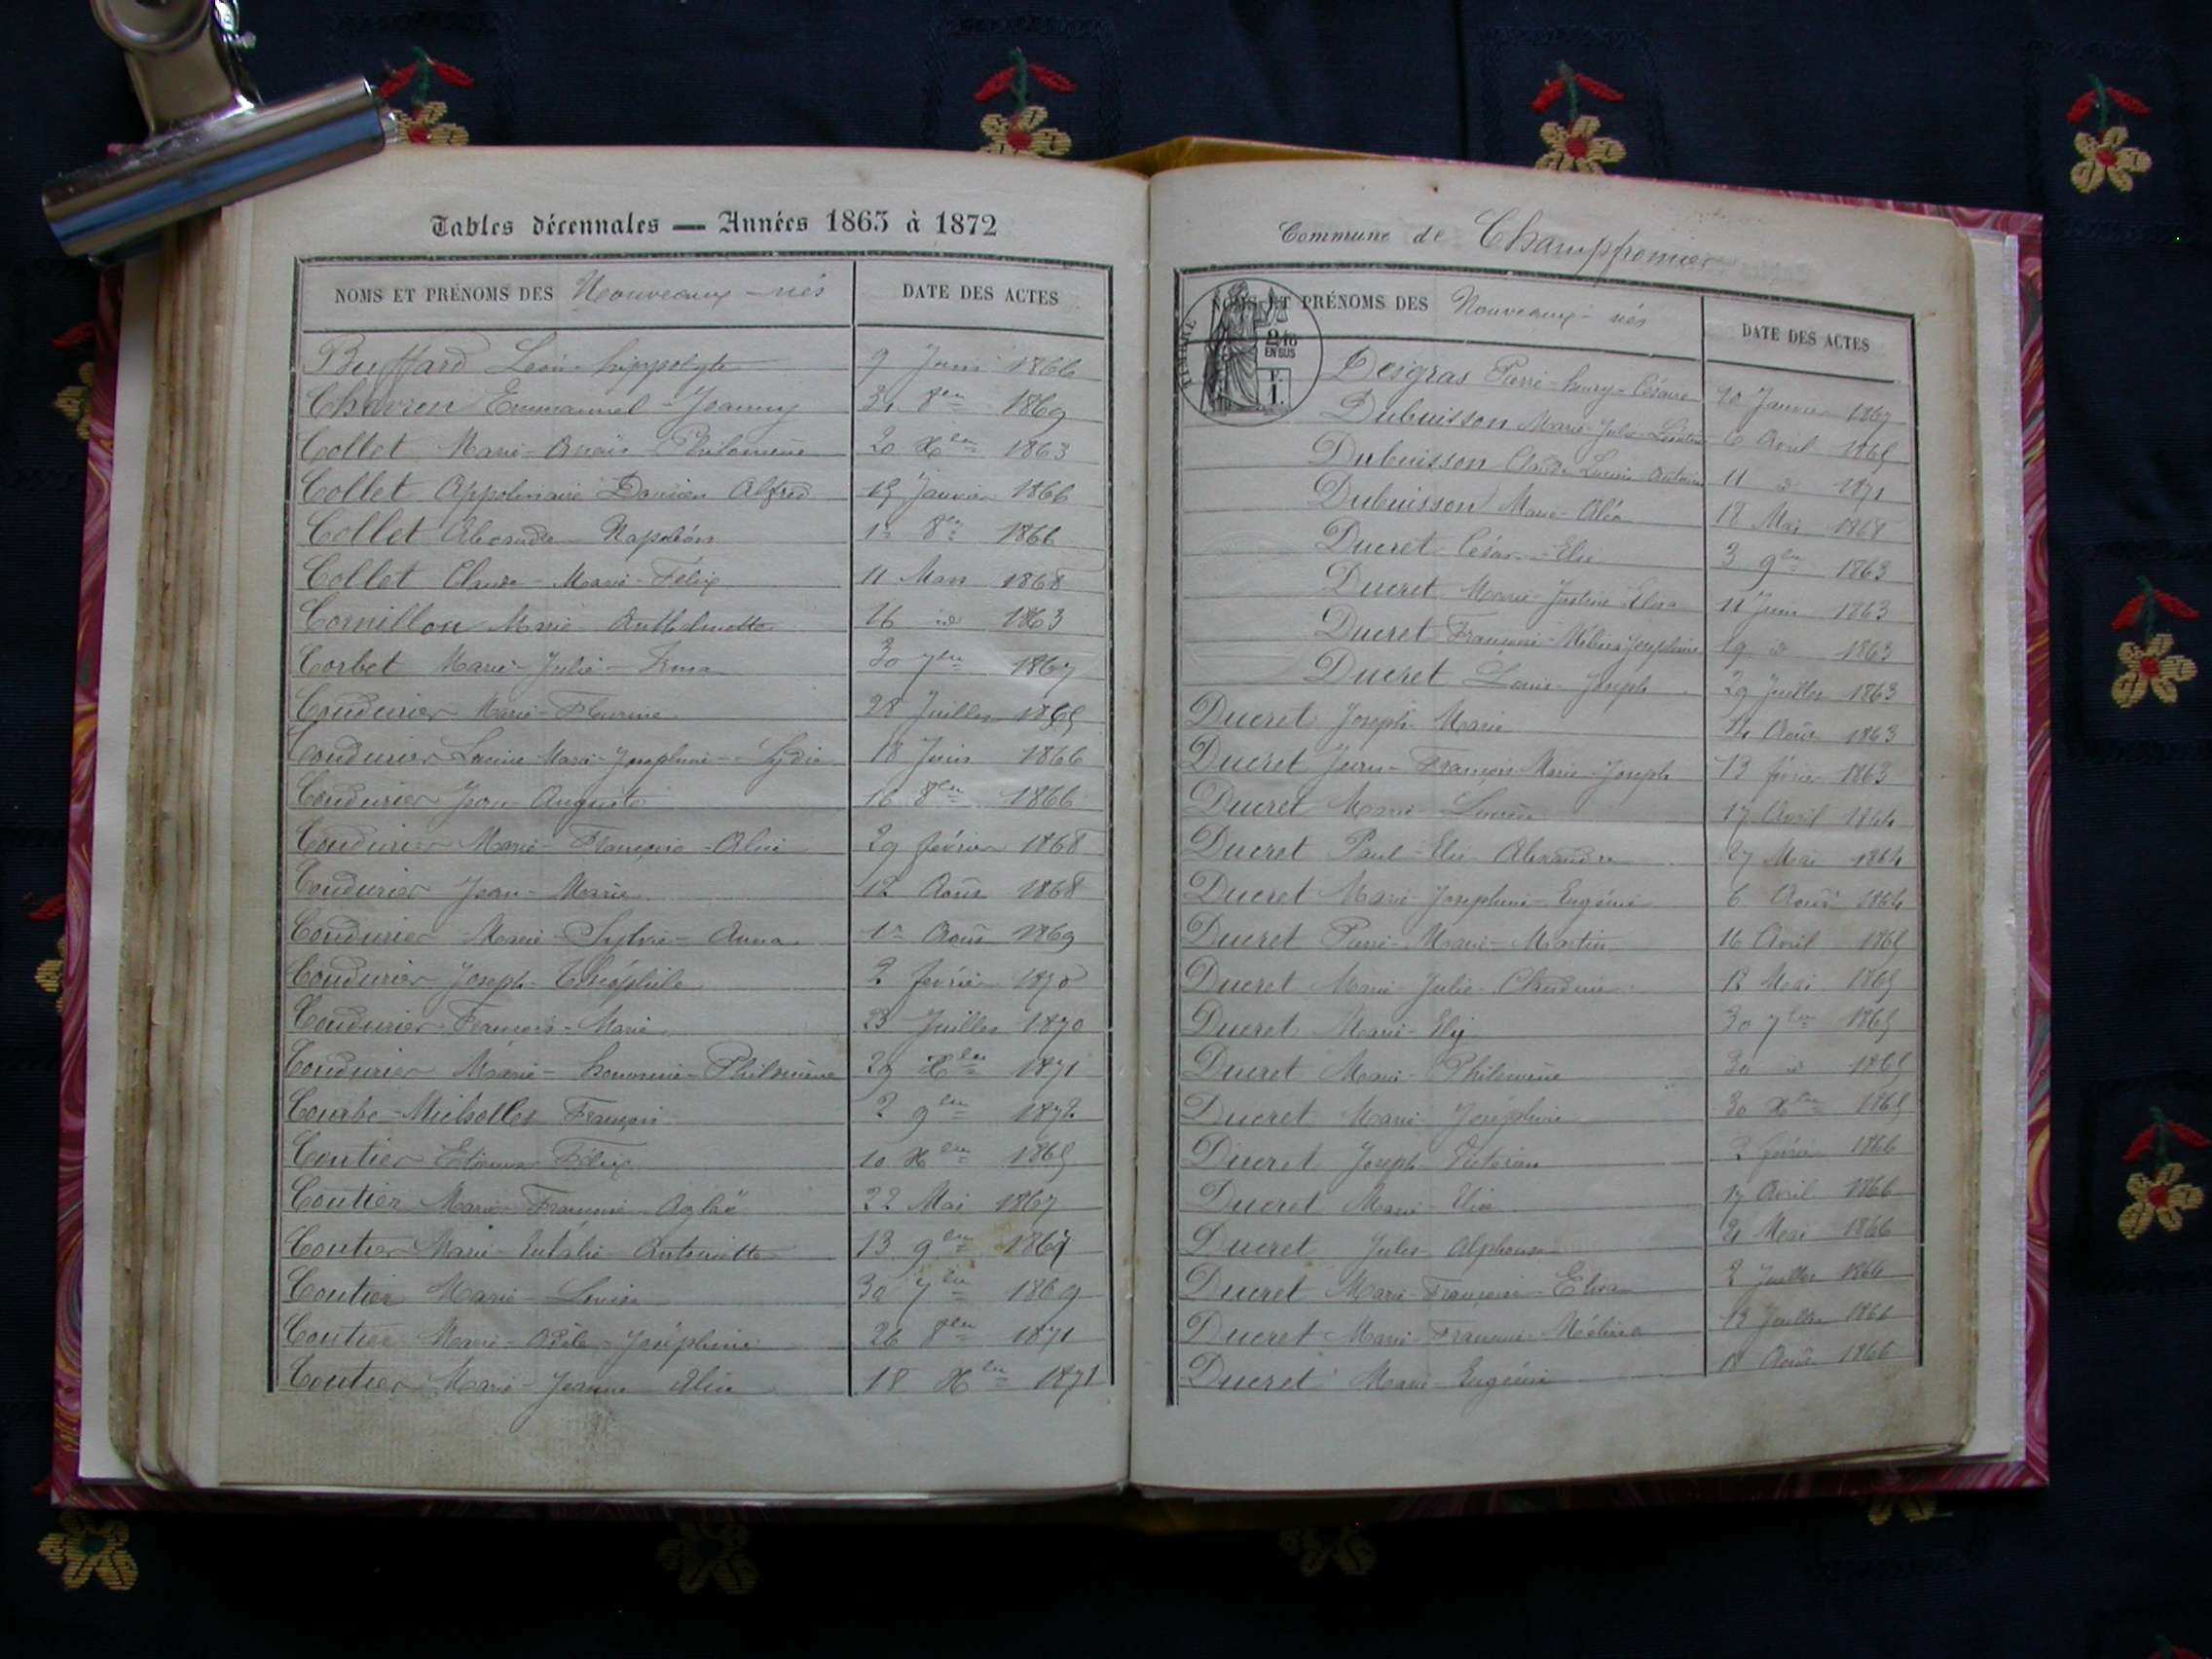 Tables décennales — Années 1863 à 1872
NOMS ET PRÉNOMS DES Nouveaux-nés DATE DES ACTES
Buffard Léon-hippolyte 9 Juin 1866
Chavren Emmanuel-Jeanny 31 8bre 1869
Collet Marie-Anaïs-Philomène 20 Xbre 1863
Collet Appolinaire Damien Alfred 15 Janvier 1866
Collet Alexandre-Napoléon 1er 8bre 1866
Collet Claude-Marie-Félix 11 Mars 1868
Cornillon Marie-Anthelmette 16 id 1863
Corbet Marie-Julie-Irma 30 7bre 1867
Coudurier Marie-Fleurine 28 Juillet 1865
Coudurier Lucine Marie-Josephine-Lydie 18 Juin 1866
Coudurier Jean-Auguste 16 8bre 1866
Coudurier Marie-Françoise-Aline 29 février 1868
Coudurier Jean-Marie 12 Août 1868
Coudurier Marie-Sylvie-Anna 1er Août 1869
Coudurier Joseph-Théophile 2 février 1870
Coudurier François-Marie 23 Juillet 1870
Coudurier Marie-honorine-Philomène 29 Xbre 1871
Courbe-Michollet François 2 9bre 1872
Coutier Etienne Félix 10 Xbre 1865
Coutier Marie-Françoise-Aglaë 22 Mai 1867
Coutier Marie-Eulalie-Antoinette 13 9bre 1867
Coutier Marie-Louise 30 7bre 1869
Coutier Marie-Adèle-Joséphine 26 8bre 1871
Coutier Marie-Jeanne-Alice 18 Xbre 1871
Commune de Champfromier
TIMBRE
2/10
EN SUS
F.
1.
NOMS ET PRÉNOMS DES Nouveaux-nés DATE DES ACTES
Desgras Pierre-henry-Césaire 20 Janvier 1867
Dubuisson Marie-Julie 6 Avril 1865
Dubuisson Claude Louis Antoine 11 id 1871
Dubuisson Marie 18 Mai 1868
Ducret César-Elie 3 9bre 1863
Ducret Marie-Justine 11 Juin 1863
Ducret Françoise-Mélina Joséphine 19 id 1863
Ducret Louis-Joseph 29 Juillet 1863
Ducret Joseph-Marie Août 1863
Ducret Jean-François Marie-Joseph 13 février 1863
Ducret Marie 17 Avril 1864
Ducret Paul-Elie-Alexandre 27 Mai 1864
Ducret Marie-Josephine-Eugénie 6 Août 1864
Ducret Pierre-Marie-Martin 16 Avril 1865
Ducret Marie Julie-Claudine 12 Mai 1865
Ducret Marie-Ely 30 7bre 1865
Ducret Marie-Philomène 30 id 1865
Ducret Marie-Joséphine 30 Xbre 1865
Ducret Joseph-Victorin 2 février 1866
Ducret Marie-Elise 17 Avril 1866
Ducret Jules-Alphonse 21 Mai 1866
Ducret Marie-Françoise-Elisa 2 Juillet 1866
Ducret Marie-Françoise-Mélina 12 Juillet 1866
Ducret Marie-Eugénie Août 1866